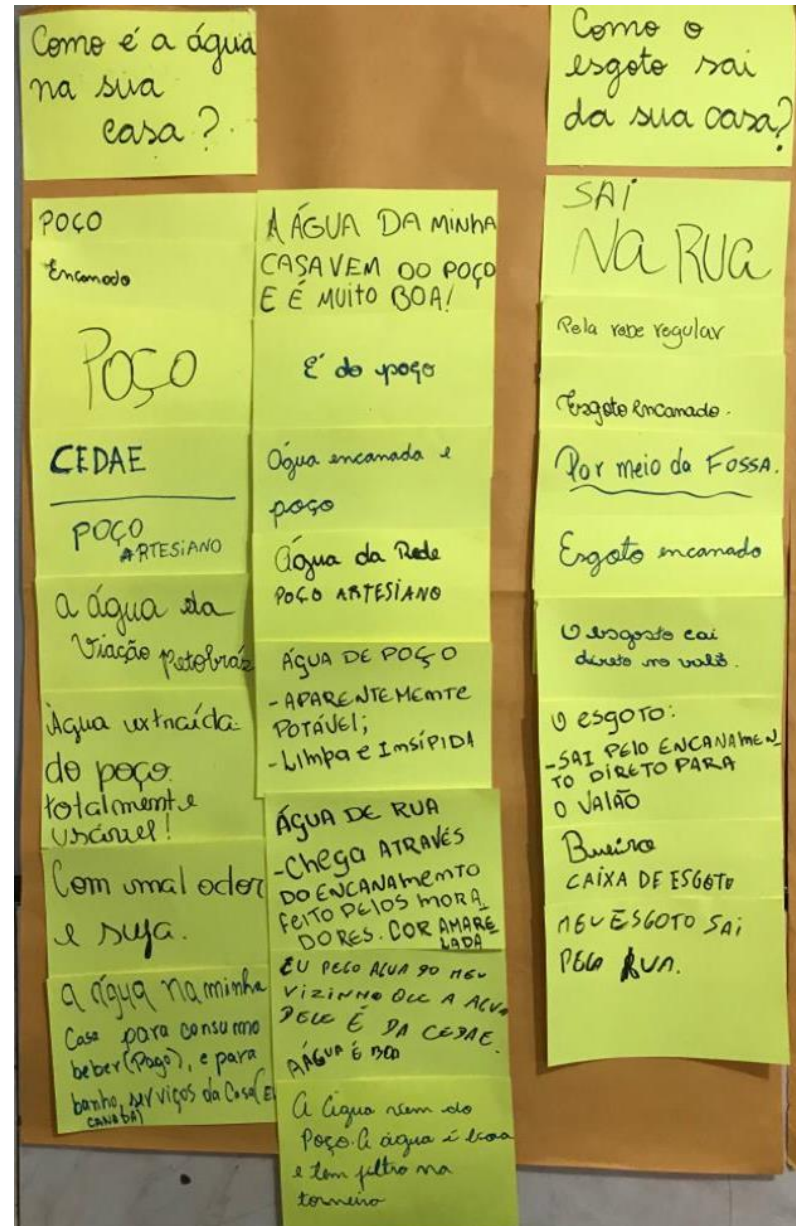 Como é a água
na sua
casa?
POÇO
Encanado
POÇO
CEDAE
POÇO
ARTESIANO
a água da
Viação Petobráz
Água extraída
do poço.
totalmente
usável!
Com mal odor
e suja.
a água na minha
Casa para consumo
beber (Pago), e para
banho, serviços da Casa (EN
CANADA)
A ÁGUA DA MINHA
CASA VEM DO POÇO
E É MUITO BOA!
É do poço
Água encanada e
poço
Água da Rede
POÇO ARTESIANO
ÁGUA DE POÇO
- APARENTEMENTE
POTÁVEL;
- LIMPA e INSÍPIDA
ÁGUA DE RUA
- Chega ATRAVÉS
DO ENCANAMENTO
FEITO PELOS MORA
DORES. COR AMARE
LADA
EU PEGO AGUA DO MEU
VIZINHO QUE A AGUA
DELE É DA CEDAE.
A ÁGUA É BOA
A água vem do
Poço. A água é boa
e tem filtro na
torneira
Como o
esgoto sai
da sua casa?
SAI
NA RUA
Pela rede regular
Esgoto encanado.
Por meio da FOSSA.
Esgoto encanado
O esgosto cai
direto no valão.
O esgoto:
- SAI PELO ENCANAMEN_
TO DIRETO PARA
O VALÃO
Bueiro
CAIXA DE ESGOTO
MEU ESGOTO SAI
PELA RUA.